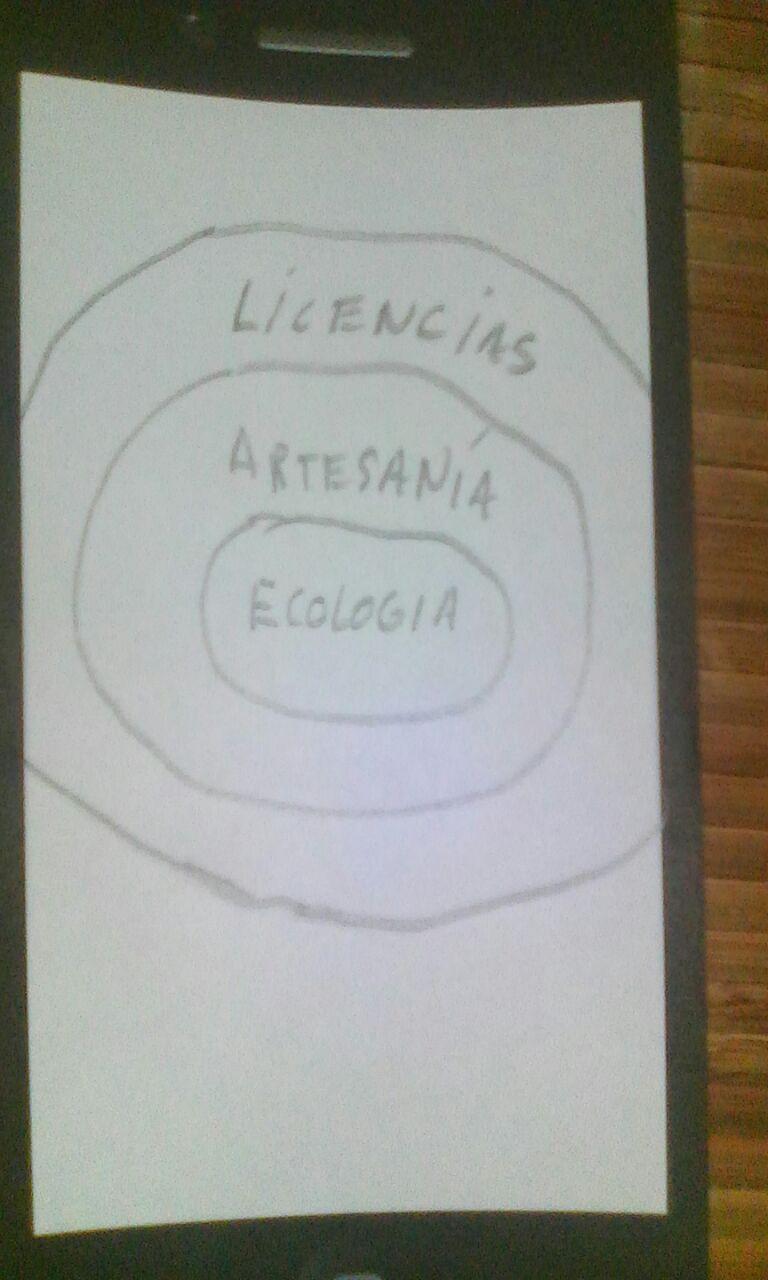 LiCENCiAS
ARTESANÍA
ECOLOGIA